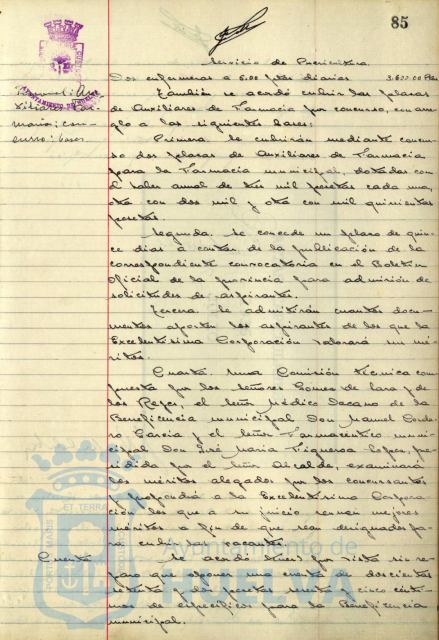 85
AYUNTAMIENTO DE HUELVA
Servicio de Puericultura.
Dos enfermeras a 5.00 ptas diarias 3.600.00 Ptas
También se acordó cubrir dos plazas
de Auxiliares de Farmacia por concurso, con arre-
glo a las siguientes bases:
xiliares Far-
macia: con-
curso: bases
Primera. Se cubrirán mediante concur-
so dos plazas de Auxiliares de Farmacia
para la Farmacia municipal, dotadas con
el haber anual de tres mil pesetas cada una,
otra con dos mil y otra con mil quinientas
pesetas.
Segunda. Se concede un plazo de quin-
ce dias a contar de la publicación de la
correspondiente convocatoria en el Boletin
Oficial de la provincia para admisión de
solicitudes de aspirantes.
Tercera. Se admitirán cuantos docu-
mentos aporten los aspirantes de los que la
Excelentísima Corporación valorará sus mé-
ritos.
Cuarta. Una Comisión técnica com-
puesta por los señores Gomez de Lara y de
los Reyes, el señor Médico Decano de la
Beneficencia municipal Don Manuel Corde-
ro Garcia y el señor Farmacéutico muni-
cipal Don José Maria Figueroa Lopez, pre-
sidida por el señor Alcalde, examinará
los méritos alegados por los concursantes
y propondrá a la Excelentísima Corpora-
ción los que a su juicio reunan mejores
méritos a fin de que sean designados pa-
ra cubrir las vacantes.
Cuenta Se acordó por vista sin re-
paro que oponer una cuenta de doscientas
setenta y dos pesetas cinco cénti-
mos de específicos para la Beneficencia
municipal.
Ayuntamiento de
HUELVA